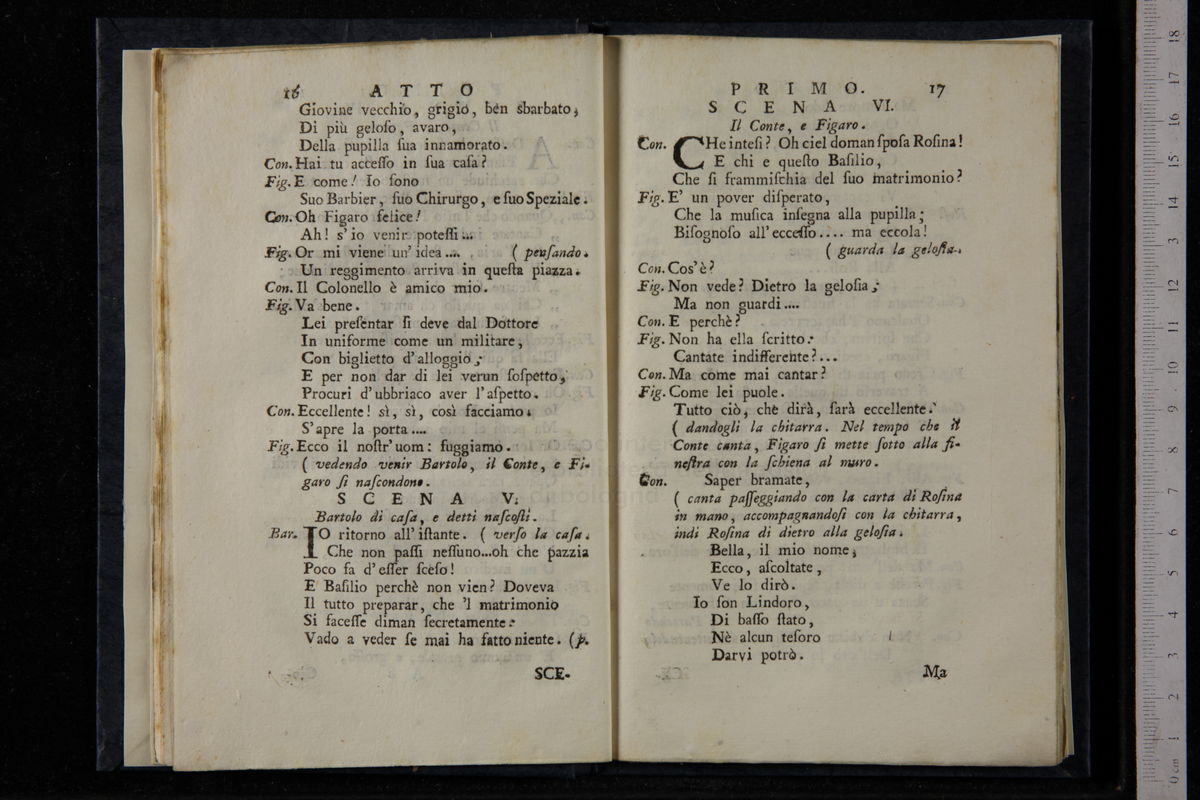 16 ATTO
Giovine vecchio, grigio, ben sbarbato,
Di più geloſo, avaro,
Della pupilla ſua innamorato.
Con. Hai tu acceſſo in ſua caſa?
Fig. E come! Io ſono
Suo Barbier, ſuo Chirurgo, e ſuo Speziale.
Con. Oh Figaro felice!
Ah! s'io venir poteſſi...
Fig. Or mi viene un'idea.... ( penſando.
Un reggimento arriva in queſta piazza.
Con. Il Colonello è amico mio.
Fig. Va bene.
Lei preſentar ſi deve dal Dottore
In uniforme come un militare,
Con biglietto d'alloggio;
E per non dar di lei verun ſoſpetto,
Procuri d'ubbriaco aver l'aſpetto.
Con. Eccellente! sì, sì, così facciamo.
S'apre la porta....
Fig. Ecco il noſtr'uom: fuggiamo.
( vedendo venir Bartolo, il Conte, e Fi-
garo ſi naſcondono.
SCENA V.
Bartolo di caſa, e detti naſcoſti.
Bar. IO ritorno all'iſtante. ( verſo la caſa.
Che non paſſi neſſuno...oh che pazzia
Poco fa d'eſſer ſceſo!
E Baſilio perchè non vien? Doveva
Il tutto preparar, che 'l matrimonio
Si faceſſe diman ſecretamente:
Vado a veder ſe mai ha fatto niente. (p.
SCE-
PRIMO. 17
SCENA VI.
Il Conte, e Figaro.
Con. CHe inteſi? Oh ciel doman ſpoſa Roſina!
E chi e queſto Baſilio,
Che ſi frammiſchia del ſuo matrimonio?
Fig. E' un pover diſperato,
Che la muſica inſegna alla pupilla;
Biſognoſo all'ecceſſo.... ma eccola!
( guarda la geloſia.
Con. Cos'è?
Fig. Non vede? Dietro la geloſia;
Ma non guardi....
Con. E perchè?
Fig. Non ha ella ſcritto:
Cantate indifferente?...
Con. Ma come mai cantar?
Fig. Come lei puole.
Tutto ciò, chè dirà, ſarà eccellente.
( dandogli la chitarra. Nel tempo che il
Conte canta, Figaro ſi mette ſotto alla fi-
neſtra con la ſchiena al muro.
Con. Saper bramate,
( canta paſſeggiando con la carta di Roſina
in mano, accompagnandoſi con la chitarra,
indi Roſina di dietro alla geloſia.
Bella, il mio nome,
Ecco, aſcoltate,
Ve lo dirò.
Io ſon Lindoro,
Di baſſo ſtato,
Nè alcun teſoro
Darvi potrò.
Ma
0 cm 1 2 3 4 5 6 7 8 9 10 11 12 13 14 15 16 17 18